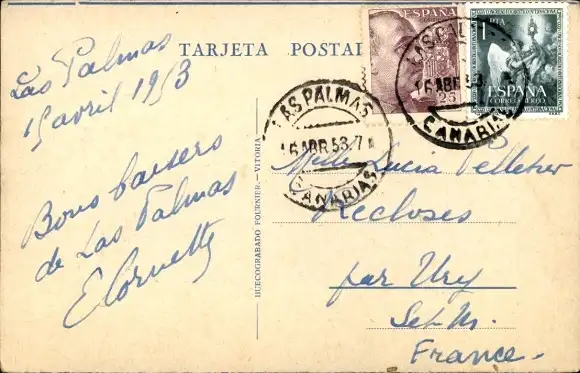 TARJETA POSTAL
Las Palmas
15 avril 1953
Bons baisers
de Las Palmas
HUECOGRABADO FOURNIER.-VITORIA
ESPAÑA
25
1 PTA
ESPAÑA
CORREO AEREO
LAS PALMAS
16 ABR 53.7
CANARIAS
LAS PALMAS
16 ABR 53
CANARIAS
Mlle Lucia Pelletier
Recloses
par Ury
Set-M.
France.